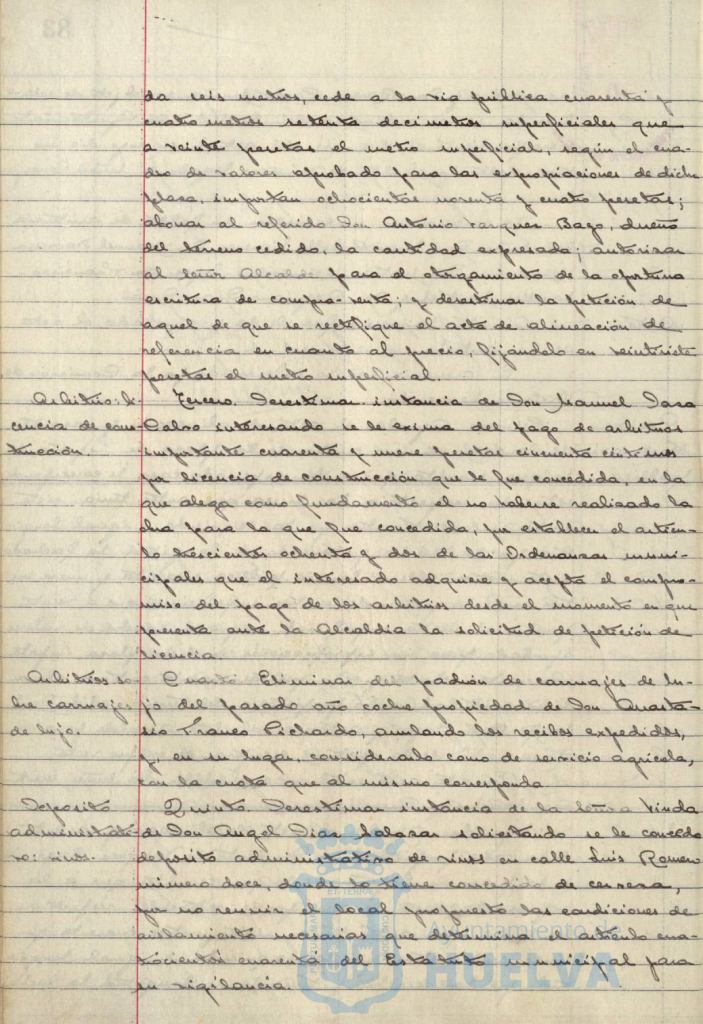 da seis metros, cede a la via pública cuarenta y
cuatro metros setenta decimetros superficiales que
a veinte pesetas el metro superficial, según el cua-
dro de valores aprobado para las expropiaciones de dicha
plaza, importan ochocientas noventa y cuatro pesetas;
abonar al referido Don Antonio Vazquez Bago, dueño
del terreno cedido, la cantidad expresada; autorizar
al Señor Alcalde para el otorgamiento de la oportuna
escritura de compra-venta; y desestimar la petición de
aquel de que se rectifique el acta de alineación de
referencia en cuanto al precio, fijándolo en veintisiete
pesetas el metro superficial.
Arbitrio: li-
cencia de cons-
trucción.
Tercero. Desestimar instancia de Don Manuel Daza
Calvo interesando se le exima del pago de arbitrios
importante cuarenta y nueve pesetas cincuenta céntimos
por licencia de construcción que le fue concedida, en la
que alega como fundamento el no haberse realizado la
obra para la que fue concedida, por establecer el artícu-
lo trescientos ochenta y dos de las Ordenanzas muni-
cipales que el interesado adquiere y acepta el compro-
miso del pago de los arbitrios desde el momento en que
presenta ante la Alcaldía la solicitud de petición de
licencia.
Arbitrios so-
bre carruajes
de lujo.
Cuarto Eliminar del padrón de carruajes de lu-
jo del pasado año coche propiedad de Don Anasta-
sio Franco Pichardo, anulando los recibos expedidos,
y, en su lugar, considerarlo como de servicio agrícola,
con la cuota que al mismo corresponda.
Depósito
administrati-
vo: vinos.
Quinto. Desestimar instancia de la Señora Viuda
de Don Angel Diaz Salazar solicitando se le conceda
depósito administrativo de vinos en calle Luis Romero
número doce, donde lo tiene concedido de cerveza,
por no reunir el local propuesto las condiciones de
aislamiento necesarias que determina el artículo cua-
trocientos cuarenta del Estatuto municipal para
su vigilancia.
Ayuntamiento de
HUELVA